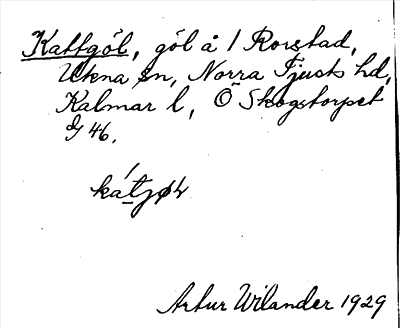 Kattgöl, göl å 1 Rorstad,
Ukna sn, Norra Tjusts hd,
Kalmar l, Ö Skogstorpet
Df 46.
Artur Wilander 1929